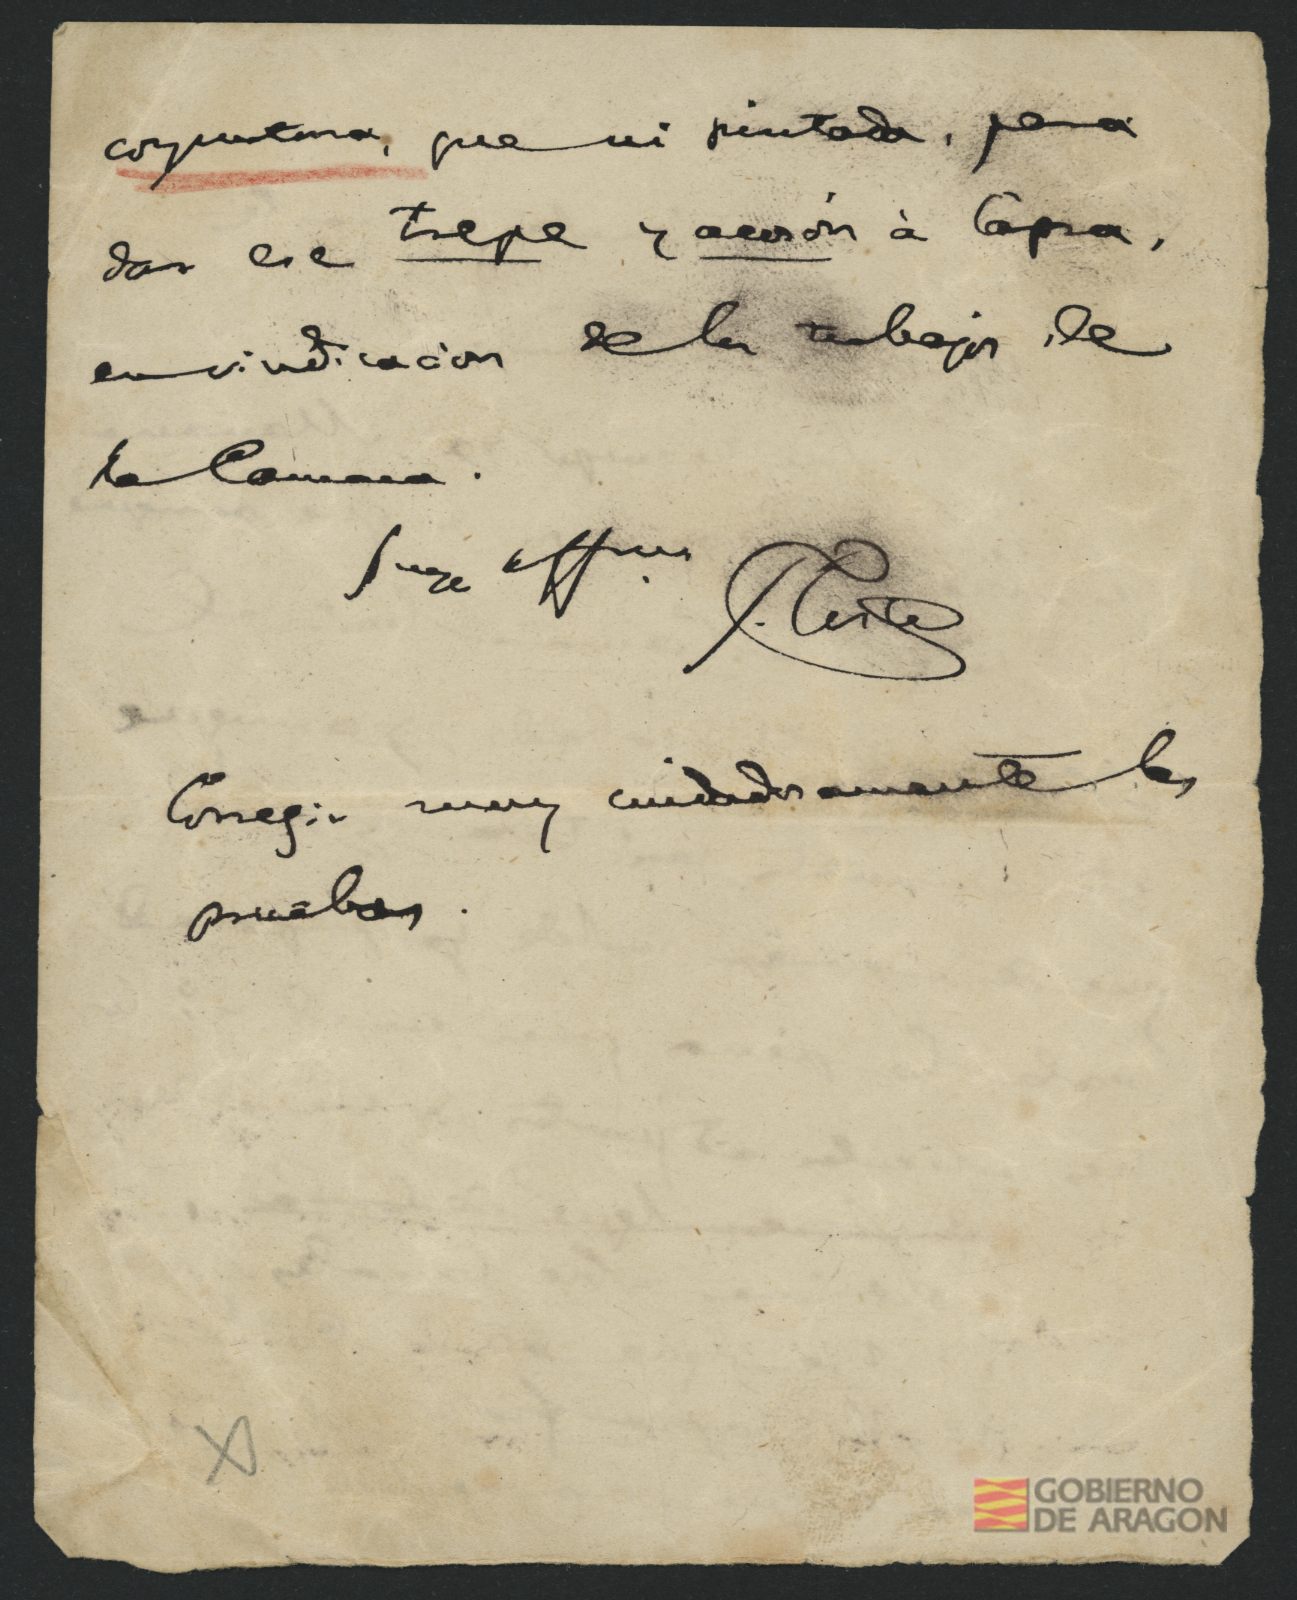 coyuntura, que ni pintada, para
dar ese trepe y acción à Capra,
en vindicación de los trabajos de
la Camara.
Suyo affmo. J. Costa
Corregir muy cuidadosamente las
pruebas.
X
GOBIERNO
DE ARAGON